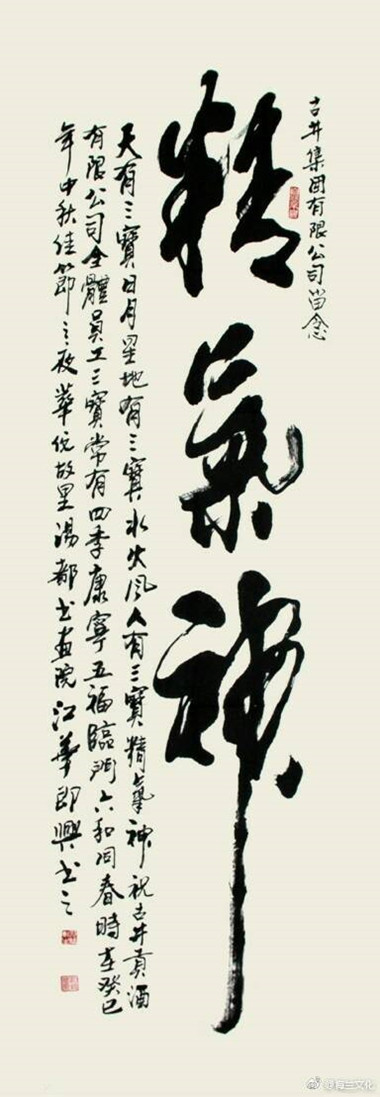 古井集团有限公司留念
精氣神
天有三寶日月星地有三寶水火风人有三寶精氣神祝古井貢酒
有限公司全體員工三寶常有四季康寧五福臨門六和同春時在癸巳
年中秋佳節之夜華佗故里湯都书画院江華即興书之
@舜兰文化